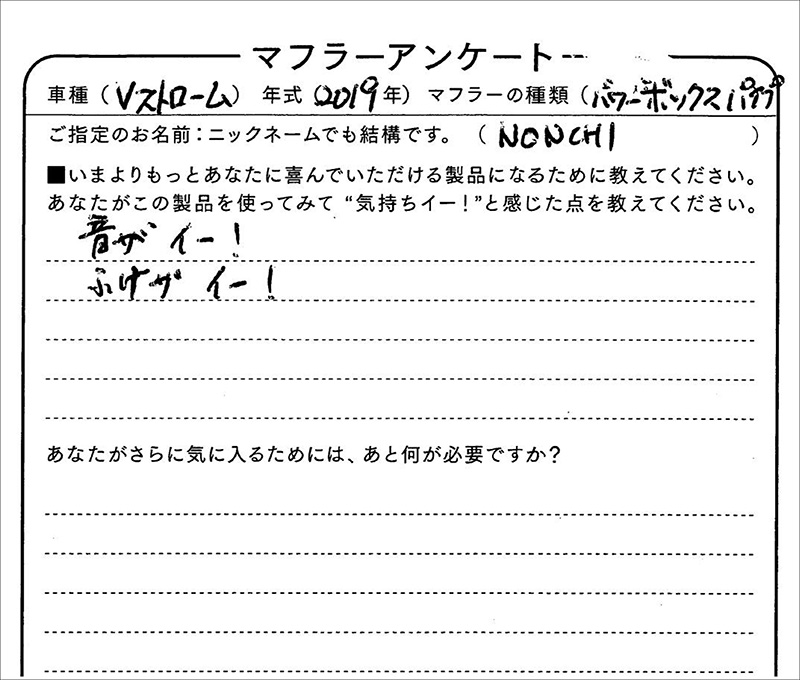 マフラーアンケート
車種（Vストローム） 年式（2019年） マフラーの種類（パワーボックスパイプ
ご指定のお名前：ニックネームでも結構です。（NONCHI）
■いまよりもっとあなたに喜んでいただける製品になるために教えてください。
あなたがこの製品を使ってみて“気持ちイー！”と感じた点を教えてください。
音がイー！
ふけがイー！
あなたがさらに気に入るためには、あと何が必要ですか？